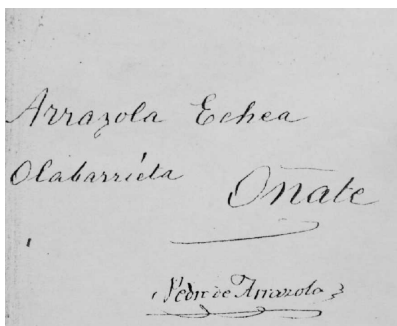 Arrazola Echea
Olabarrieta Oñate
Pedro de Arrazola